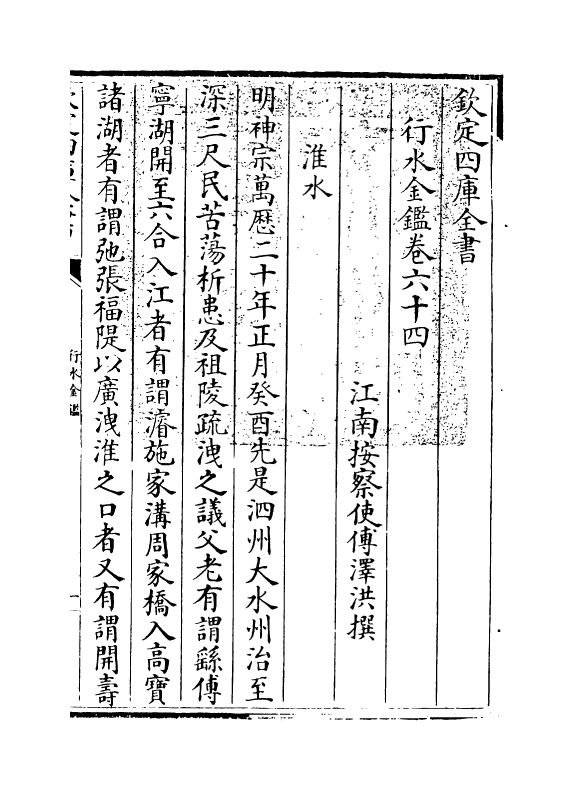 欽定四庫全書
行水金鑑卷六十四
江南按察使傅澤洪撰
淮水
明神宗萬歷二十年正月癸酉先是泗州大水州治至
深三尺民苦蕩析患及祖陵疏洩之議父老有謂繇傅
寧湖開至六合入江者有謂濬施家溝周家橋入高寶
諸湖者有謂弛張福隄以廣洩淮之口者又有謂開壽
行水金鑑
一